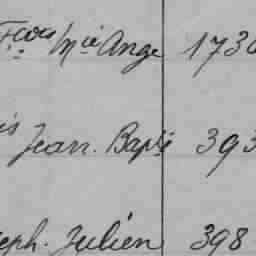 Fcois Mie Ange 1730
is Jean. Bapte 393
eph. Julien 398